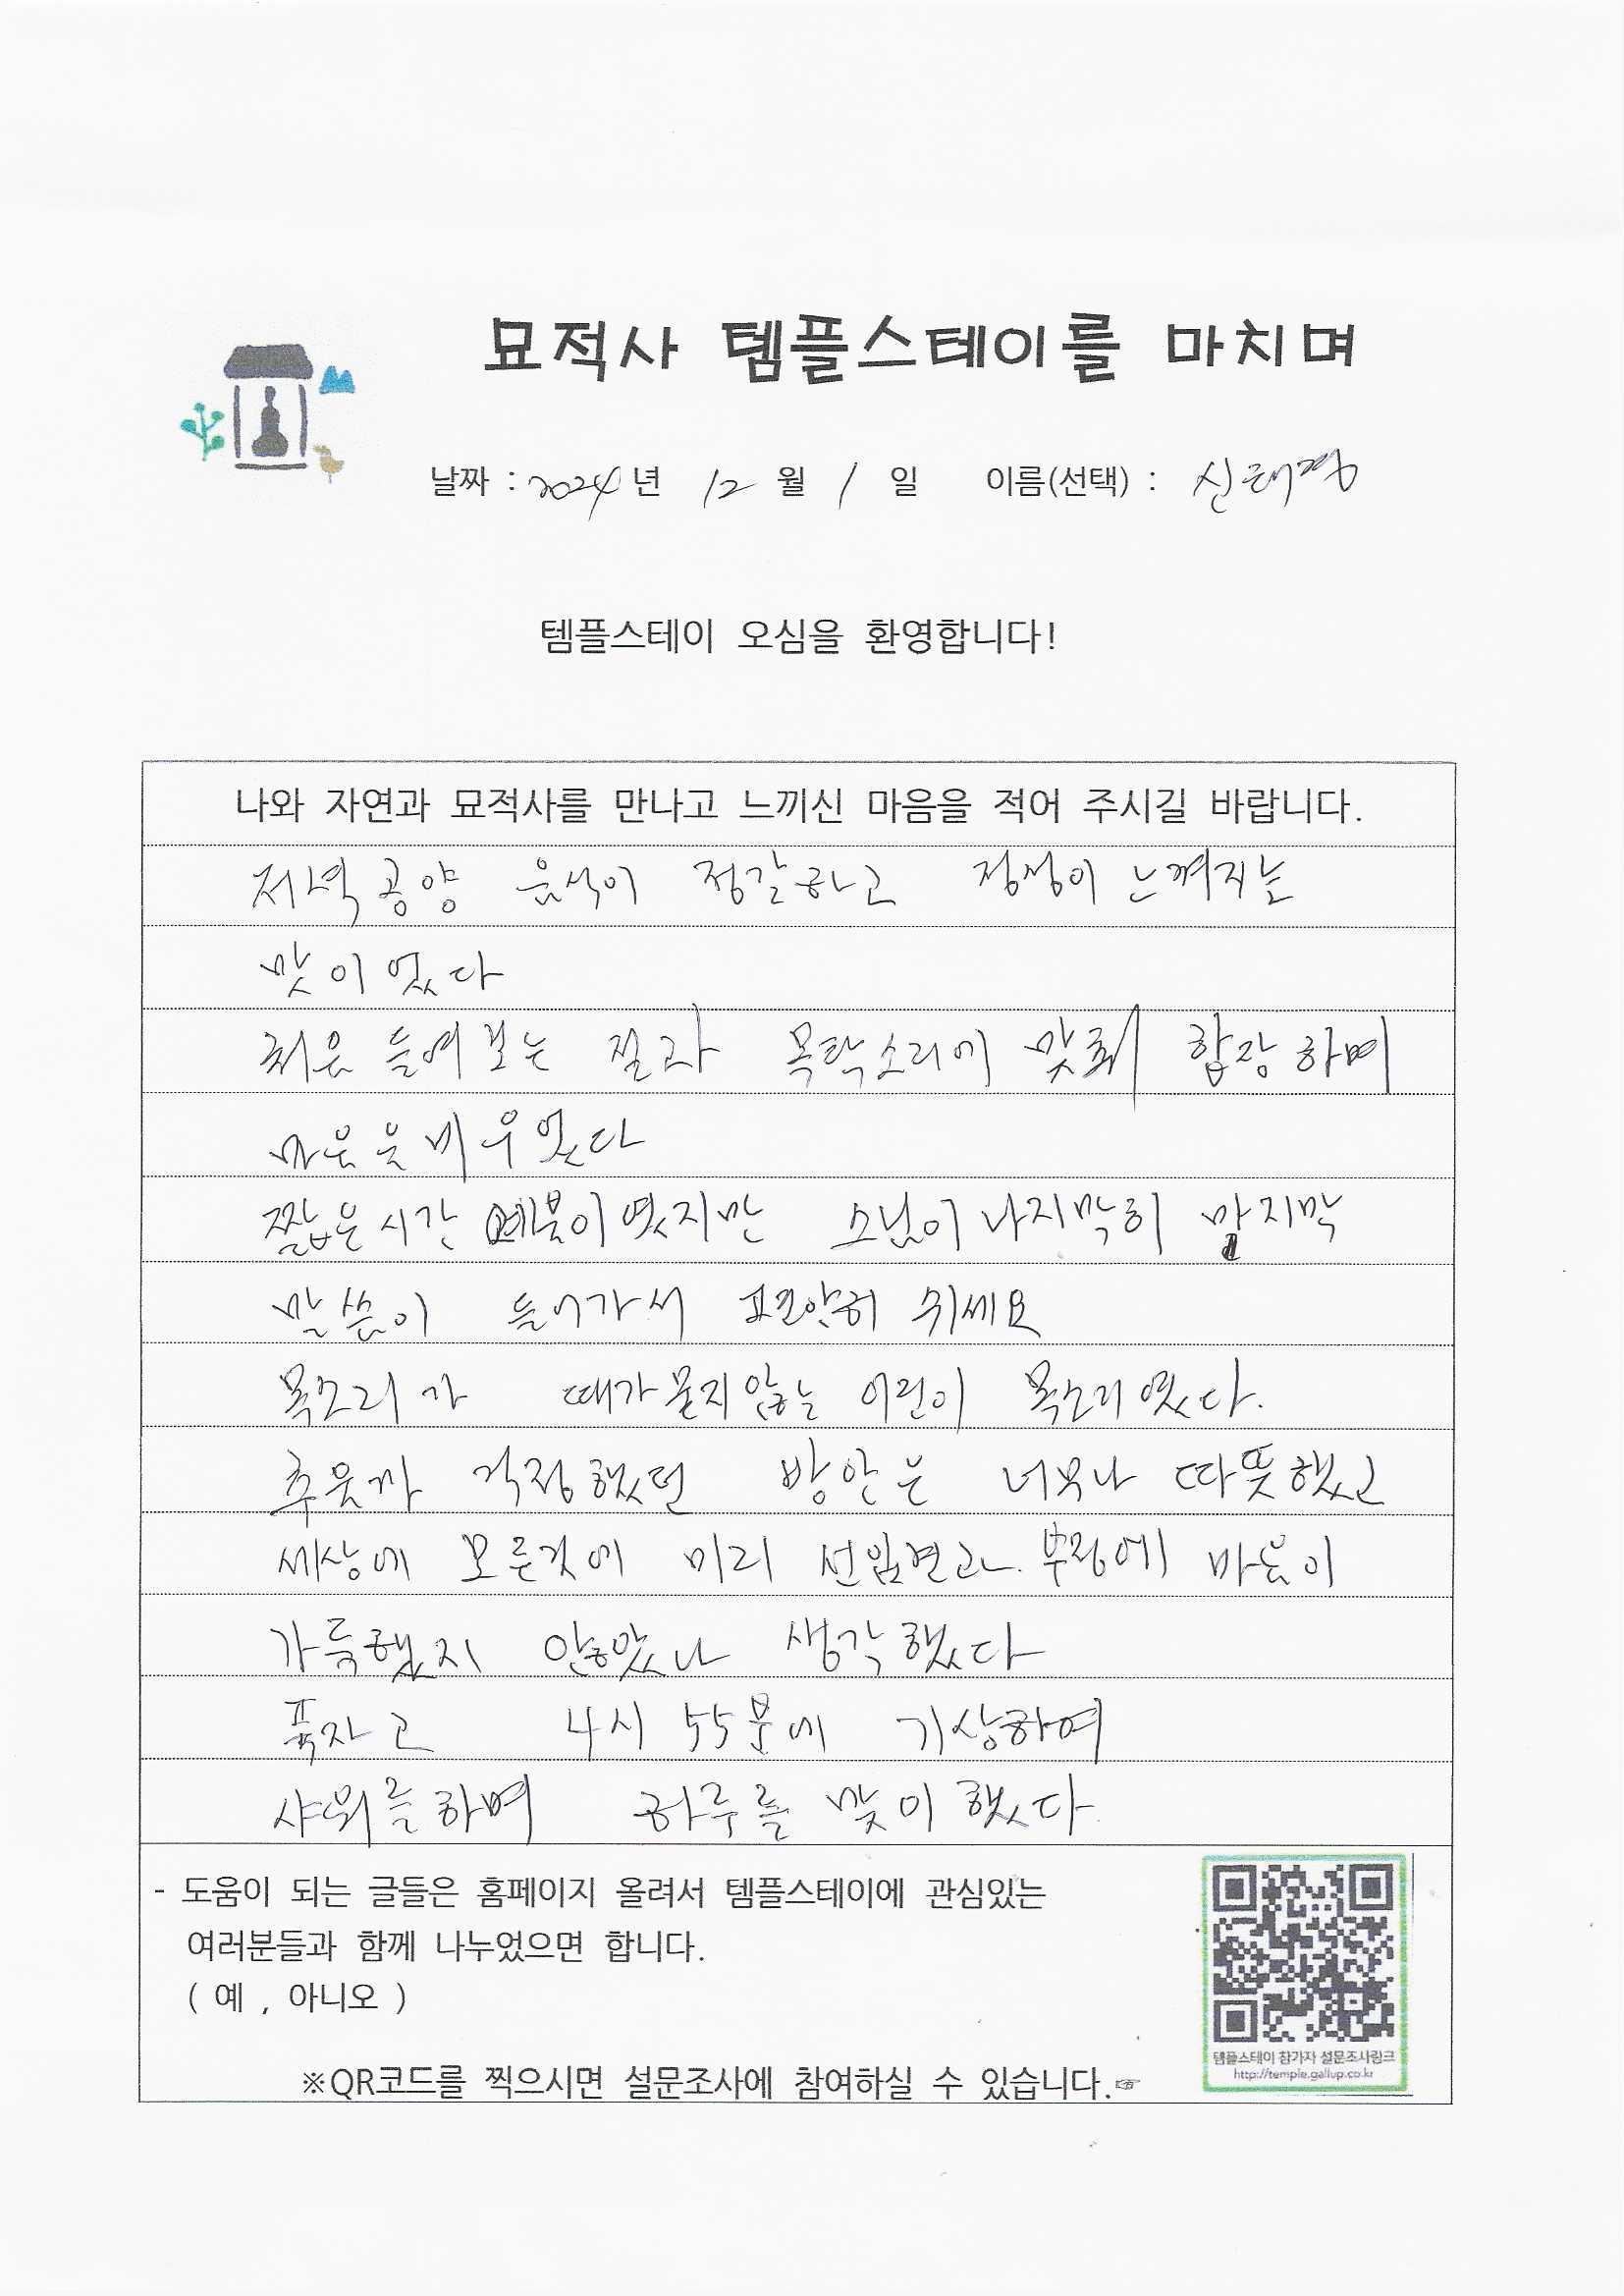 묘적사 템플스테이를 마치며
날짜 : 2024 년 12 월 1 일 이름(선택) : 신태경
템플스테이 오심을 환영합니다!
나와 자연과 묘적사를 만나고 느끼신 마음을 적어 주시길 바랍니다.
저녁공양 음식이 정갈하고 정성이 느껴지는
맛이었다
처음 들여보는 절과 목탁소리에 맞춰 합장하며
마음을 비우었다
짧은시간 예불이였지만 스님이 나지막히 마지막
말씀이 들어가서 편안히 쉬세요
목소리가 때가묻지않는 어린이 목소리였다.
추울까 걱정했던 방안은 너무나 따뜻했고
세상에 모든것에 미리 선입견과 부정에 마음이
가득했지 않았나 생각했다
푹자고 4시 55분에 기상하여
샤워를하며 하루를 맞이했다.
- 도움이 되는 글들은 홈페이지 올려서 템플스테이에 관심있는
여러분들과 함께 나누었으면 합니다.
( 예 , 아니오 )
템플스테이 참가자 설문조사링크
http://temple.gallup.co.kr
※QR코드를 찍으시면 설문조사에 참여하실 수 있습니다.☞